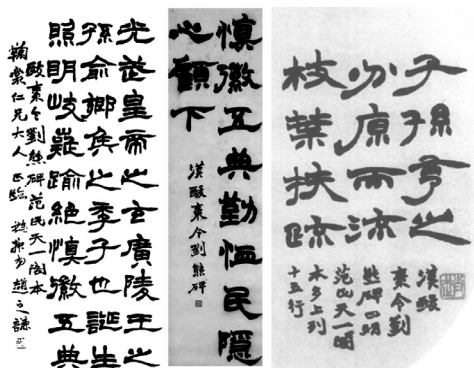 光武皇帝之玄廣陵王之
孫俞鄉矦之季子也誕生
照明岐嶷踰絕慎徽五典
酸棗令劉熊碑范氏天一閣本
鞠裳仁兄大人正臨 撝叔弟趙之謙
慎徽五典勤恤民隱
心顧下
漢酸棗令劉熊碑
子孫亨之
分原而流
枝葉扶疏
漢酸
棗令劉
熊碑四明
范氏天一閣
本多上列
十五行